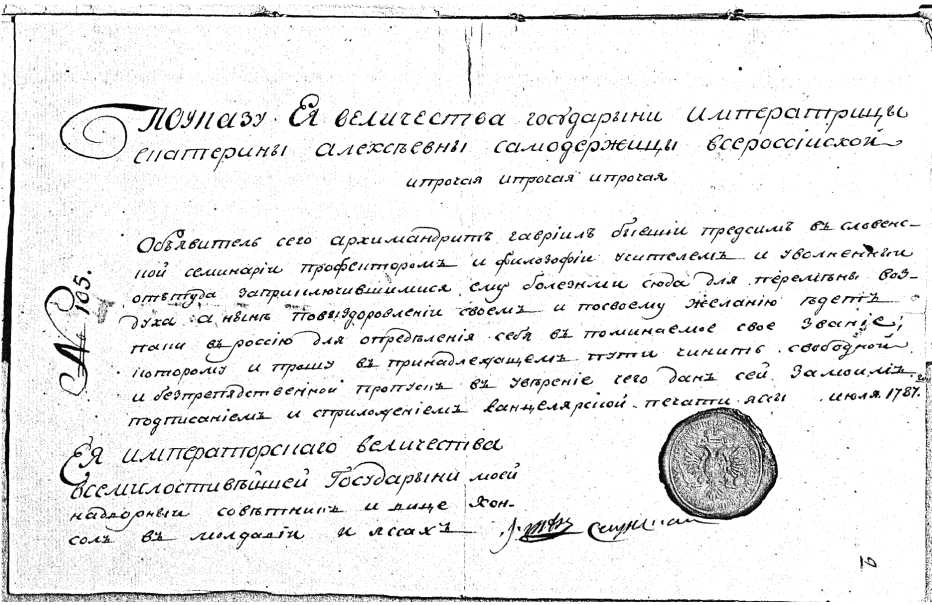 ПОУКАЗУ ЕЯ ВЕЛИЧЕСТВА государыни императрицы
екатерины алексѣевны самодержицы всероссійской
ипрочая ипрочая ипрочая
Объявитель сего архимандритъ гавріилъ бывшій предсимъ въ словенс-
кой семинаріи профекторомъ и философіи учителемъ и уволненніи
отътуда заприключившимися ему болезнми сюда для перемѣны воз-
духа а нынѣ повыздоровленіи своемъ и посвоему желанію ѣдетъ
паки въ россію для опредѣленія себя въ поминаемое свое званіе;
которому и прошу въ принадлежащемъ пути чинить свободной
и безпрепядственной пропускъ въ увѣреніе чего данъ сей замоимъ
подписаніемъ и сприложеніемъ канцелярской печати яссы июля 1787.
№ 105.
Ея императорскаго величества
всемилостивѣйшей Государыни моей
надворный совѣтникъ и вице кон-
сулъ въ молдавіи и яссахъ